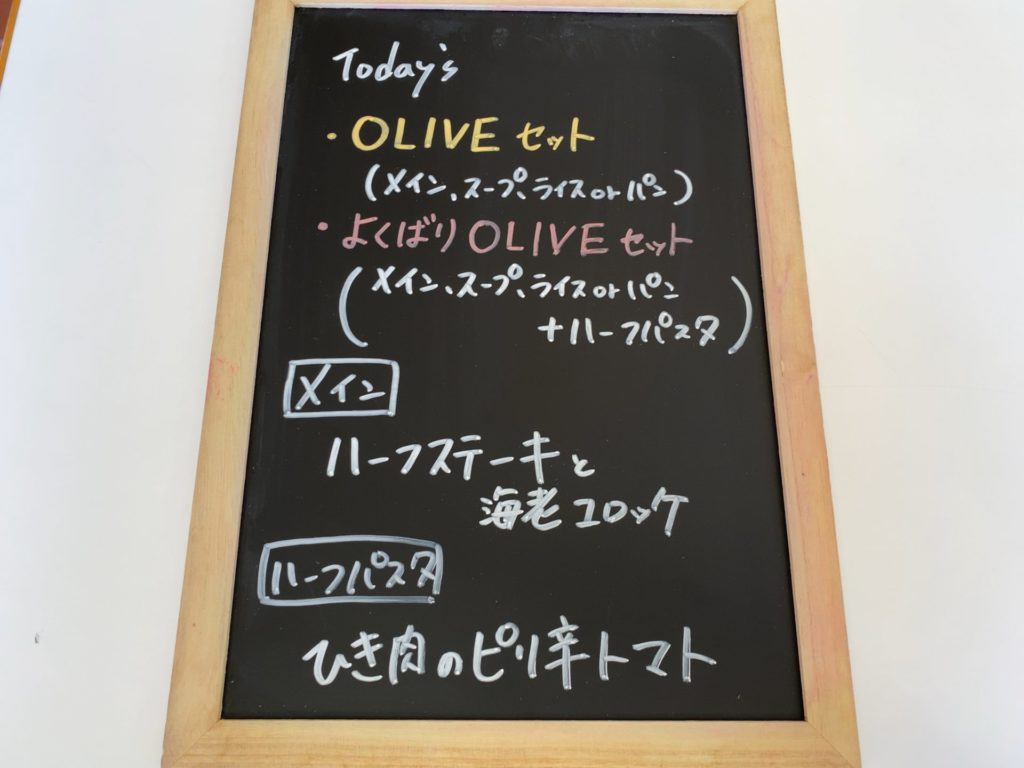 Today's
・OLIVE セット
(メイン、スープ、ライス or パン)
・よくばり OLIVE セット
(メイン、スープ、ライス or パン
+ハーフパスタ)
メイン
ハーフステーキと
海老コロッケ
ハーフパスタ
ひき肉のピリ辛トマト